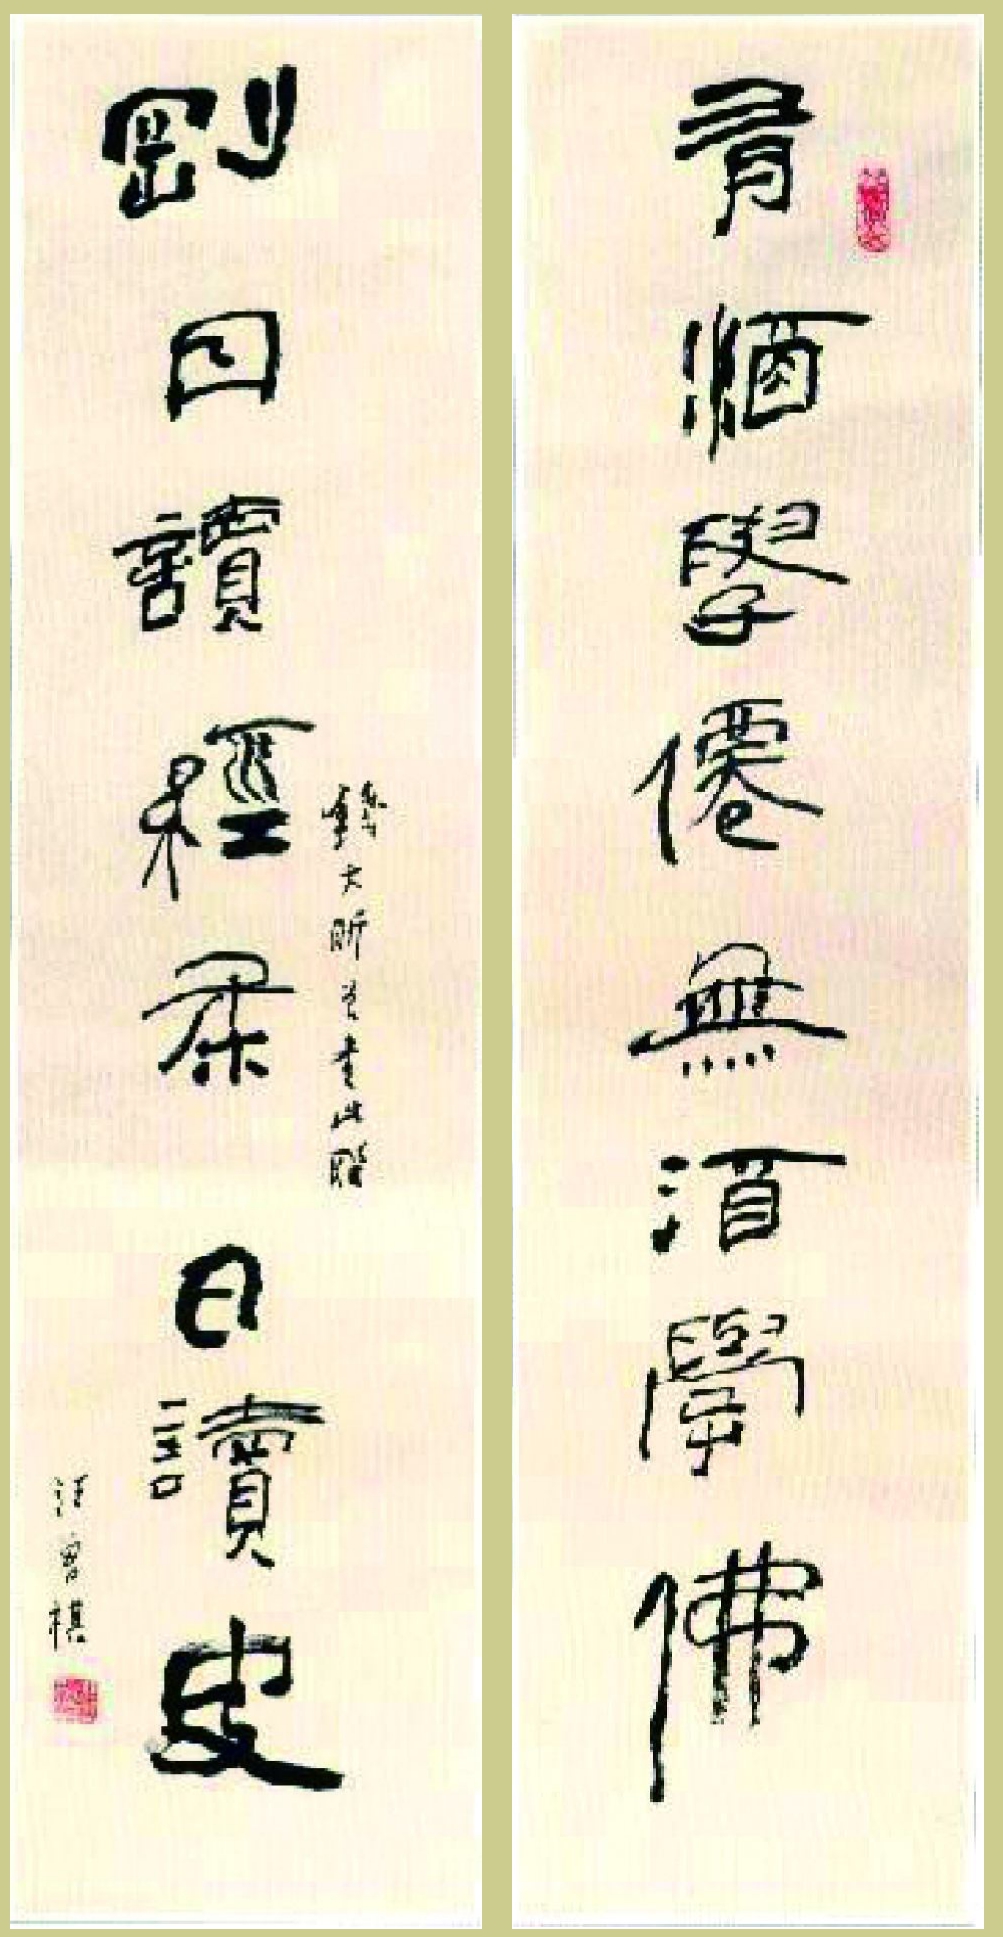 有酒學僊無酒學佛
剛日讀經柔日讀史
錢大昕曾書此聯
汪曾祺